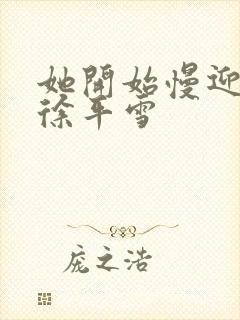 她開始慢迎
徐平雪
庞之浩